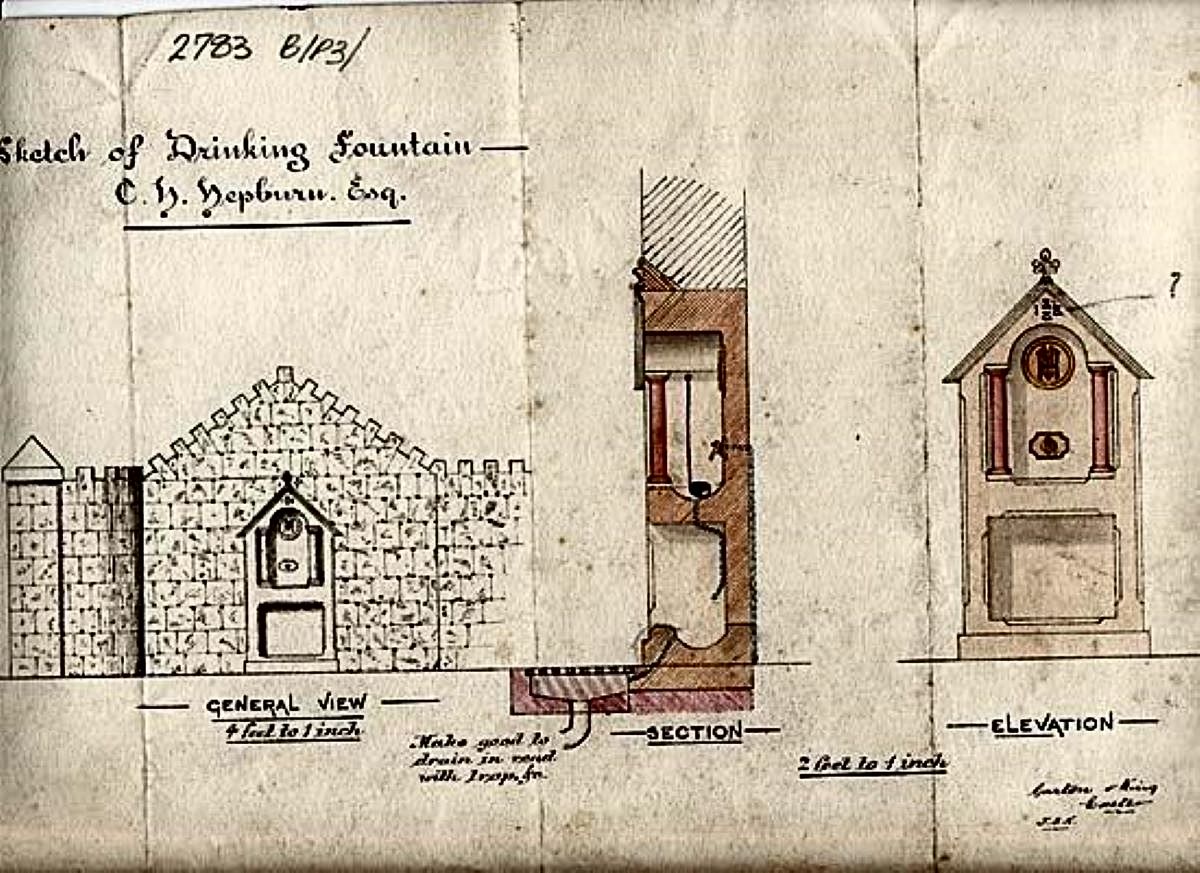 2783 B/P3/
Sketch of Drinking Fountain —
C. H. Hepburn. Esq.
?
— GENERAL VIEW —
4 feet to 1 inch
Make good to
drain in road
with trap, &c.
— SECTION —
2 feet to 1 inch
— ELEVATION —
& King